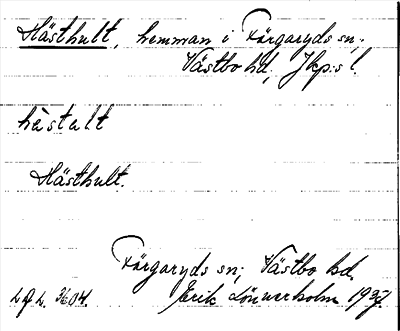 Hästhult, hemman i Färgaryds sn;
Västbo hd, Jkp:s l.
hàstult
Hästhult.
Färgaryds sn; Västbo hd.
L.G.L. 3604. Erik Lönnerholm 1937